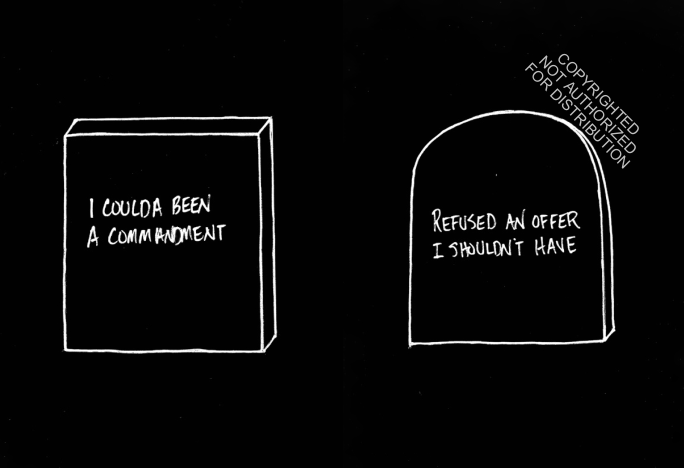 I COULDA BEEN
A COMMANDMENT
REFUSED AN OFFER
I SHOULDN'T HAVE
COPYRIGHTED
NOT AUTHORIZED
FOR DISTRIBUTION